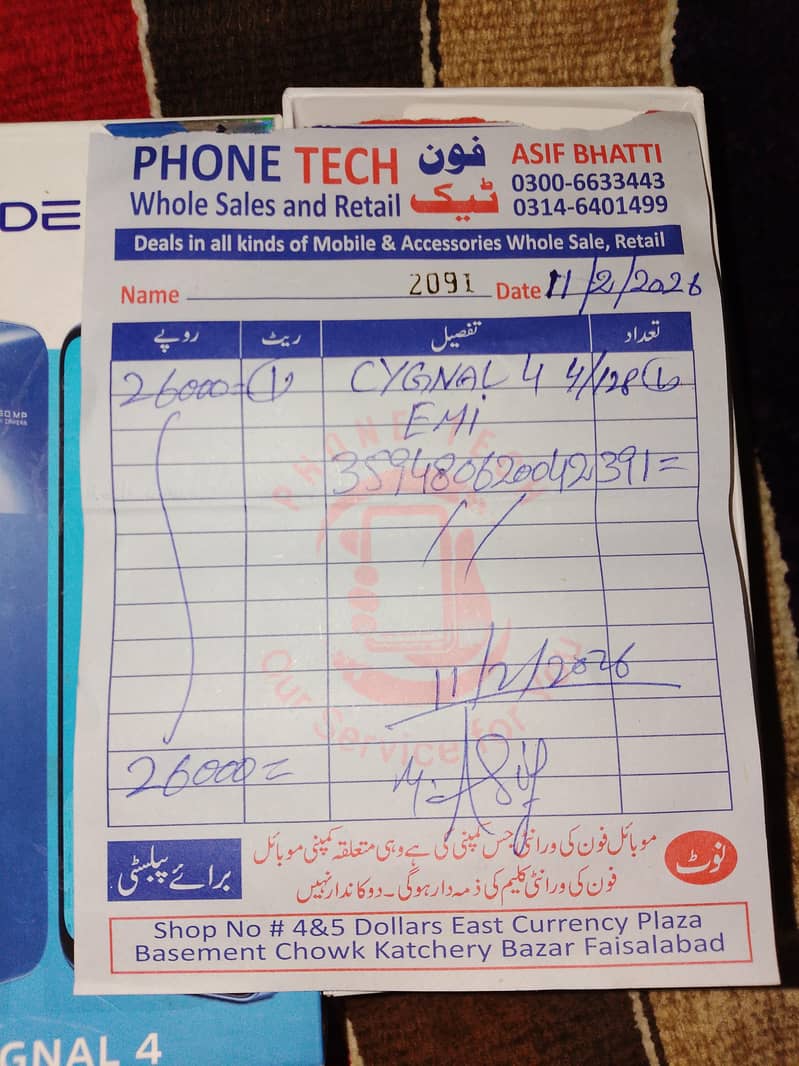 PHONE TECH فون ٹیک ASIF BHATTI
Whole Sales and Retail 0300-6633443
0314-6401499
Deals in all kinds of Mobile & Accessories Whole Sale, Retail
Name 2091 Date 11/2/2026
تعداد تفصیل ریٹ روپے
26000= 1 CYGNAL 4 4/128 1
EMI
359480620042391=
PHONE TECH
Our Service for You
11/2/2026
26000= M. Asif
نوٹ موبائل فون کی ورانٹی جس کمپنی کی ہے وہی متعلقہ کمپنی موبائل
فون کی ورانٹی کلیم کی ذمہ دار ہوگی۔ دوکاندار نہیں
برائے پبلسٹی
Shop No # 4&5 Dollars East Currency Plaza
Basement Chowk Katchery Bazar Faisalabad
DE
50 MP
GNAL 4